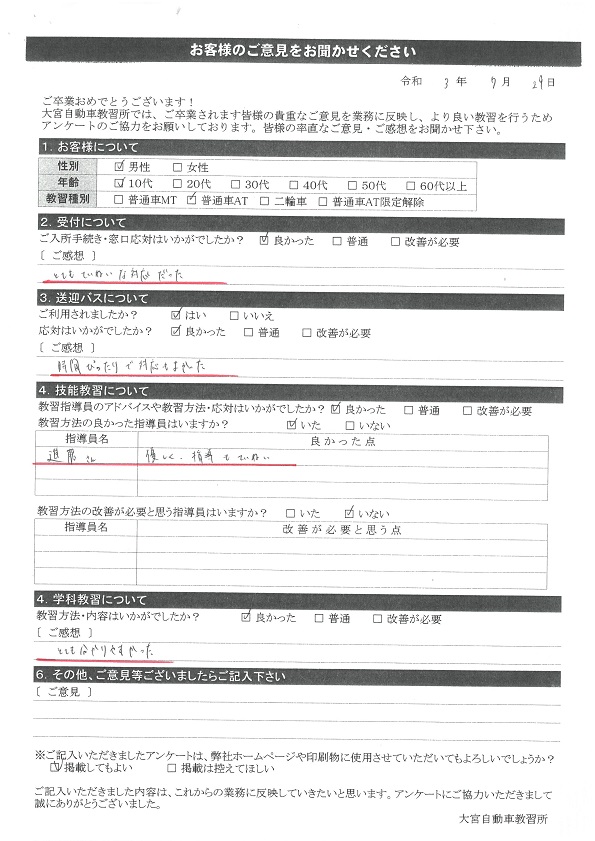 お客様のご意見をお聞かせください
令和 3年 7月 29日
ご卒業おめでとうございます！
大宮自動車教習所では、ご卒業されます皆様の貴重なご意見を業務に反映し、より良い教習を行うため
アンケートのご協力をお願いしております。皆様の率直なご意見・ご感想をお聞かせ下さい。
1. お客様について
性別 ☑ 男性 □ 女性
年齢 ☑ 10代 □ 20代 □ 30代 □ 40代 □ 50代 □ 60代以上
教習種別 □ 普通車MT ☑ 普通車AT □ 二輪車 □ 普通車AT限定解除
2. 受付について
ご入所手続き・窓口応対はいかがでしたか？ ☑ 良かった □ 普通 □ 改善が必要
〔 ご感想 〕
とてもていねいな対応だった
3. 送迎バスについて
ご利用されましたか？ ☑ はい □ いいえ
応対はいかがでしたか？ ☑ 良かった □ 普通 □ 改善が必要
〔 ご感想 〕
時間ぴったりで対応もよかった
4. 技能教習について
教習指導員のアドバイスや教習方法・応対はいかがでしたか？ ☑ 良かった □ 普通 □ 改善が必要
教習方法の良かった指導員はいますか？ ☑ いた □ いない
指導員名 良かった点
進藤さん 優しく、指導もていねい
教習方法の改善が必要と思う指導員はいますか？ □ いた ☑ いない
指導員名 改善が必要と思う点
4. 学科教習について
教習方法・内容はいかがでしたか？ ☑ 良かった □ 普通 □ 改善が必要
〔 ご感想 〕
とても
6. その他、ご意見等ございましたらご記入下さい
〔 ご意見 〕
※ご記入いただきましたアンケートは、弊社ホームページや印刷物に使用させていただいてもよろしいでしょうか？
☑ 掲載してもよい □ 掲載は控えてほしい
ご記入いただきました内容は、これからの業務に反映していきたいと思います。アンケートにご協力いただきまして
誠にありがとうございました。
大宮自動車教習所